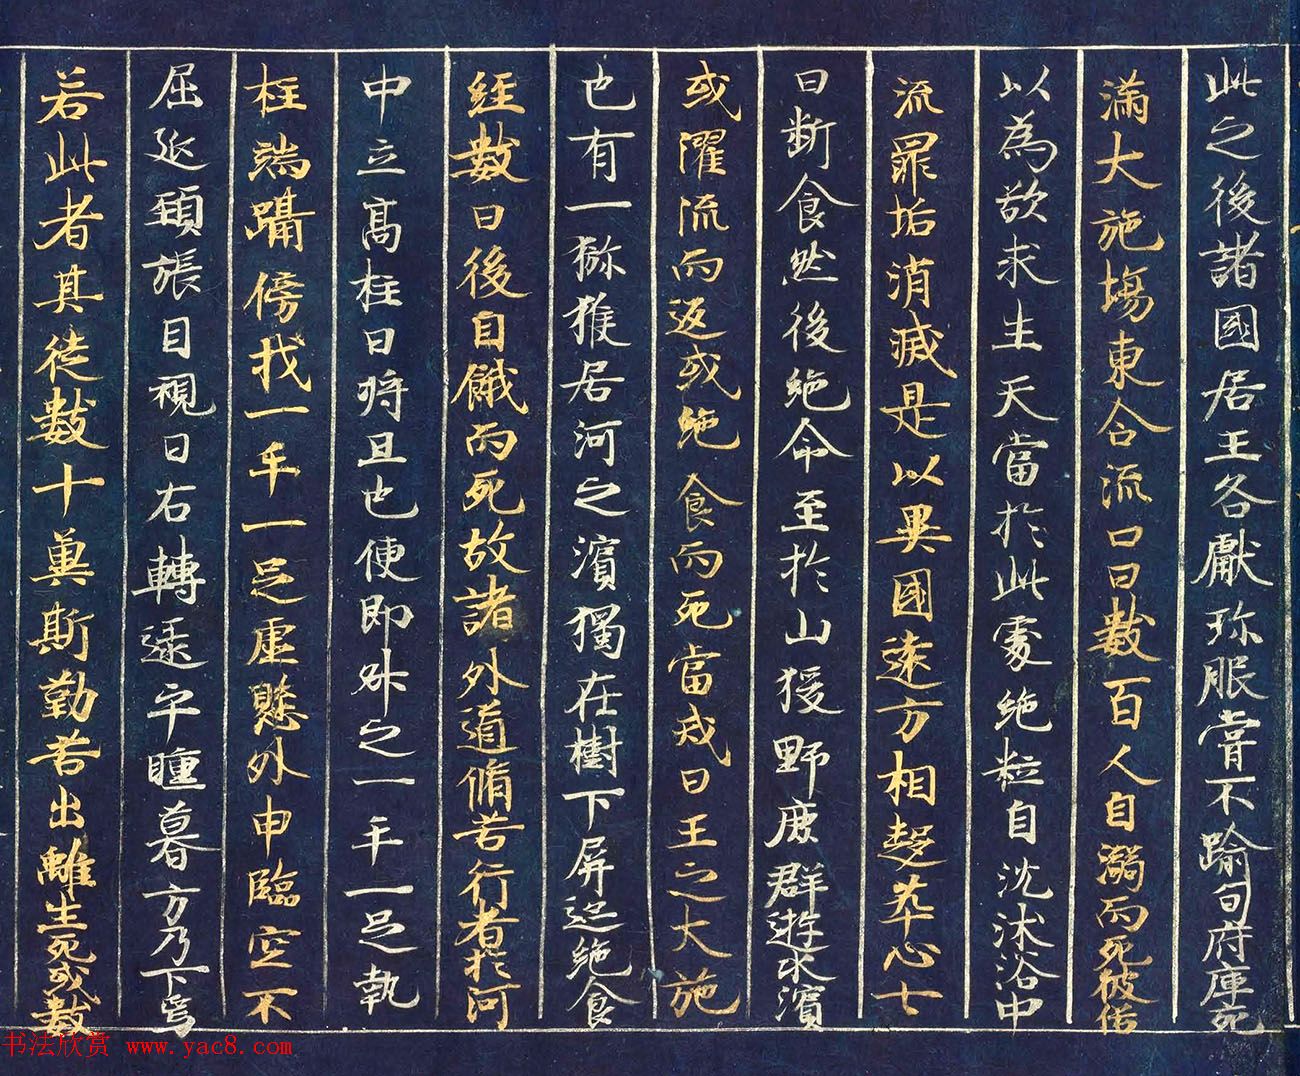 此之後諸國君王各獻珎服嘗不踰旬府庫充
滿大施場東合流口日數百人自溺而死彼俗
以為欲求生天當於此處絶粒自沈沐浴中
流罪垢消滅是以異國遠方相趍萃心七
日斷食然後絶命至於山猨野鹿群遊水濱
或濯流而返或絶食而死當戒日王之大施
也有一狝猴居河之濱獨在樹下屏迹絶食
經數日後自餓而死故諸外道脩苦行者於河
中立高柱日將旦也便即外之一手一足執
柱端躡傍找一手一足虛懸外申臨空不
屈延頸張目視日右轉逮乎曛暮方乃下焉
若此者其徒數十冀斯勤苦出離生死或數
书法欣赏 www.yac8.com